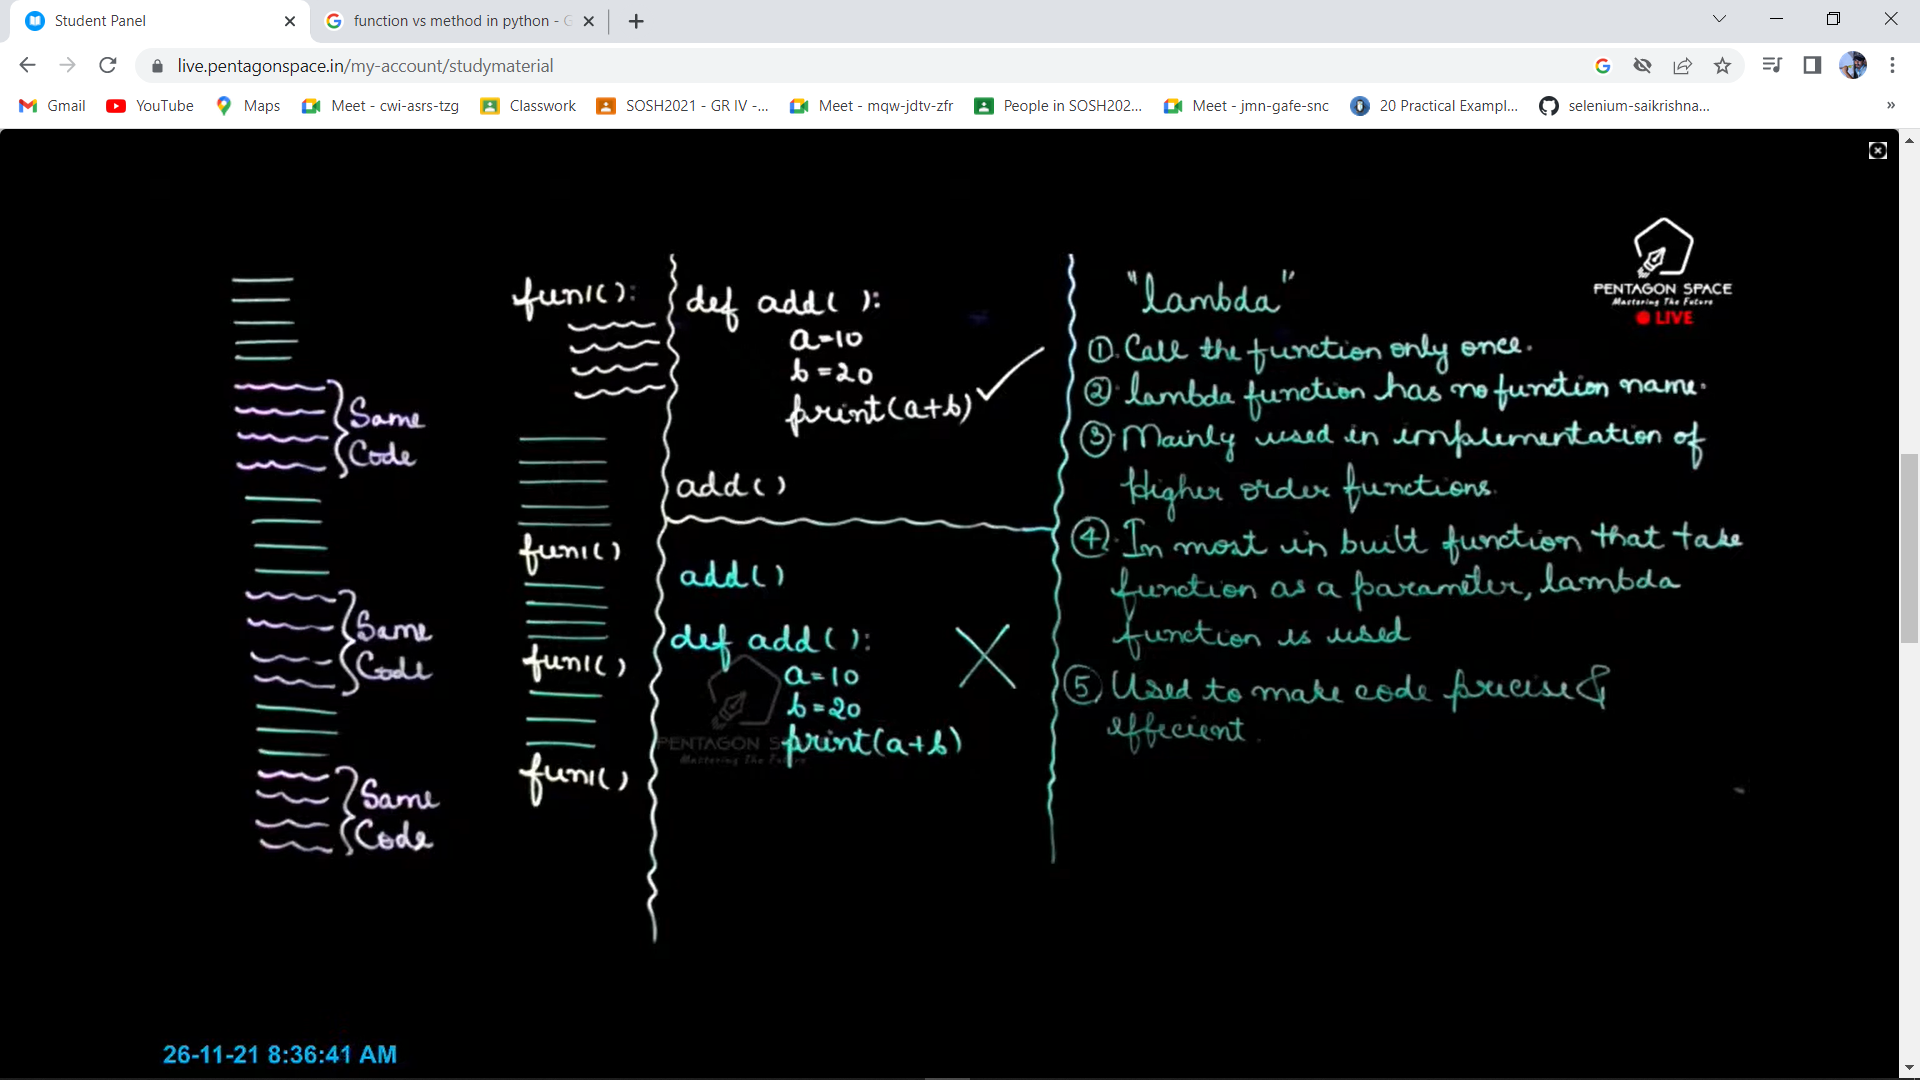 Student Panel
function vs method in python - G
live.pentagonspace.in/my-account/studymaterial
Gmail
YouTube
Maps
Meet - cwi-asrs-tzg
Classwork
SOSH2021 - GR IV -...
Meet - mqw-jdtv-zfr
People in SOSH202...
Meet - jmn-gafe-snc
20 Practical Exampl...
selenium-saikrishna...
Same
Code
Same
Code
Same
Code
fun1():
fun1()
fun1()
fun1()
def add( ):
a=10
b=20
print(a+b)
add()
add()
def add():
a=10
b=20
print(a+b)
PENTAGON S
Mastering The Future
"lambda"
① Call the function only once.
② lambda function has no function name.
③ Mainly used in implementation of
Higher order functions.
④ In most in built function that take
function as a parameter, lambda
function is used
⑤ Used to make code precise &
effecient.
PENTAGON SPACE
Mastering The Future
LIVE
26-11-21 8:36:41 AM